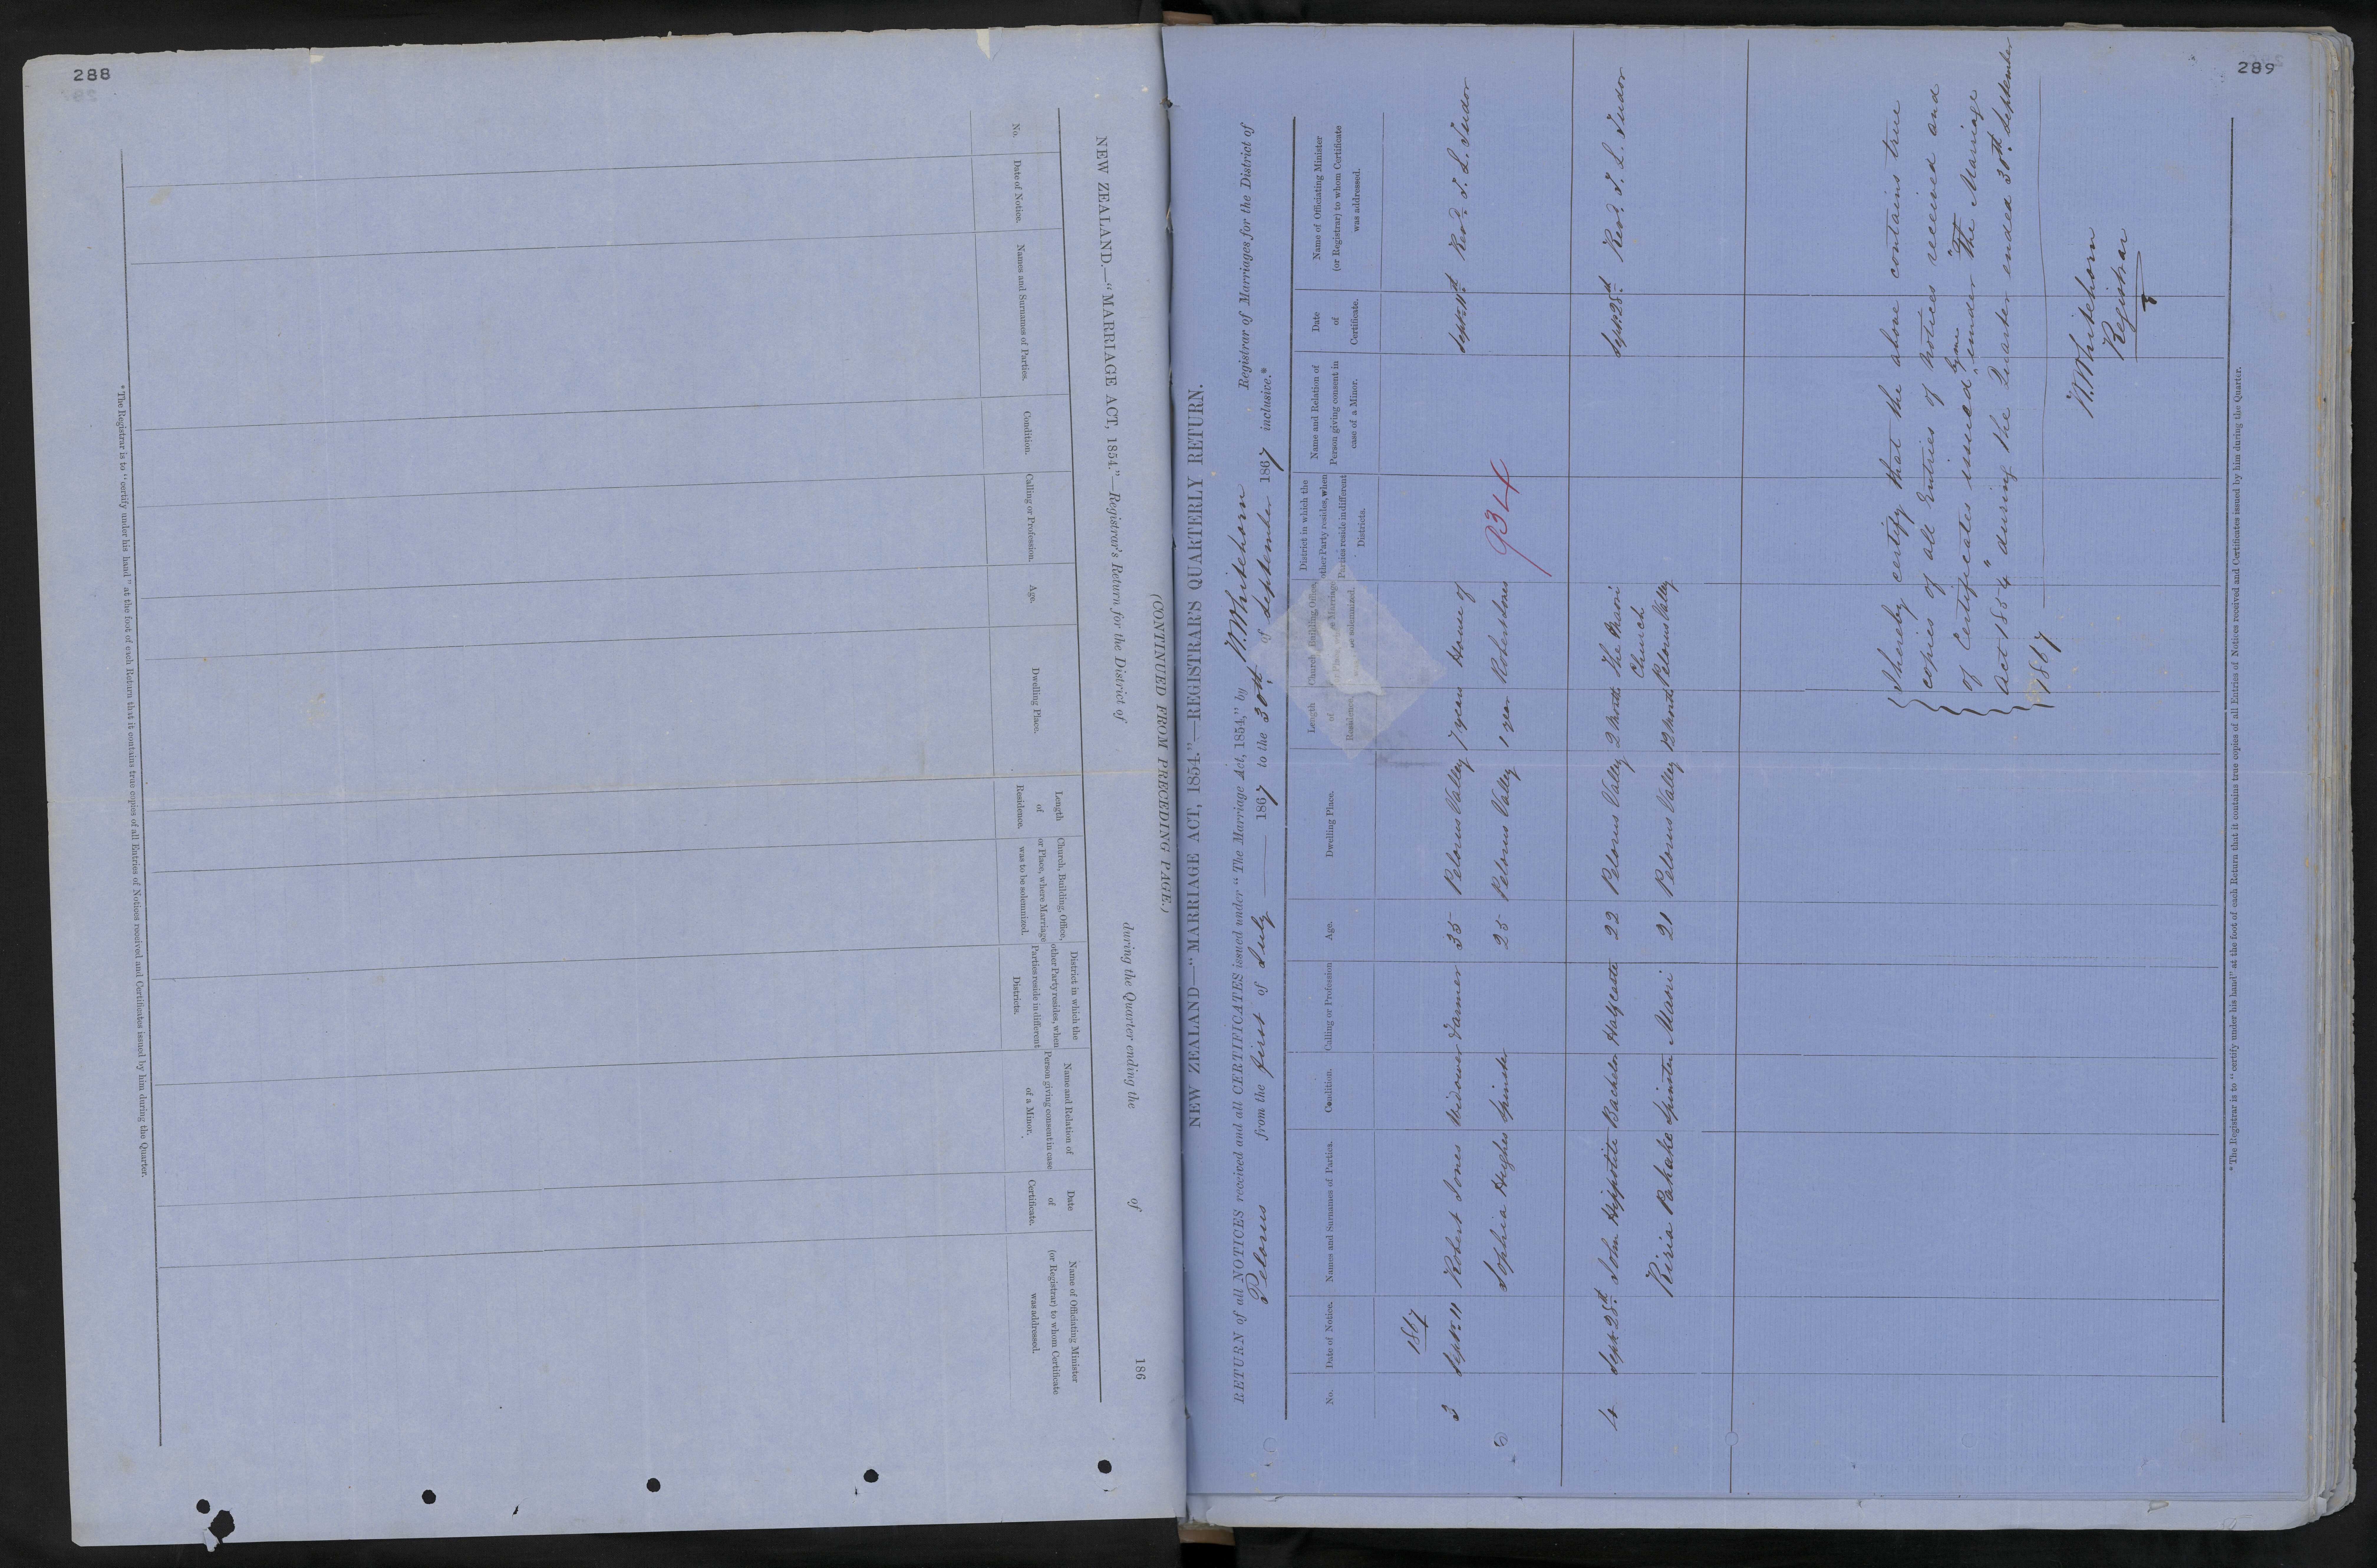 288
NEW ZEALAND.—"MARRIAGE ACT, 1854."—Registrar's Return for the District of during the Quarter ending the of 186
(CONTINUED FROM PRECEDING PAGE.)
No.
Date of Notice.
Names and Surnames of Parties.
Condition.
Calling or Profession.
Age.
Dwelling Place.
Length
of
Residence.
Church, Building, Office,
or Place, where Marriage
was to be solemnized.
District in which the
other Party resides, when
Parties reside in different
Districts.
Name and Relation of
Person giving consent in case
of a Minor.
Date
of
Certificate.
Name of Officiating Minister
(or Registrar) to whom Certificate
was addressed.
*The Registrar is to "certify under his hand" at the foot of each Return that it contains true copies of all Entries of Notices received and Certificates issued by him during the Quarter.
289
NEW ZEALAND—"MARRIAGE ACT, 1854."—REGISTRAR'S QUARTERLY RETURN.
RETURN of all NOTICES received and all CERTIFICATES issued under "The Marriage Act, 1854," by W. Whitehorn Registrar of Marriages for the District of
Pelorus from the first of July 1867 to the 30th of September 1867 inclusive.*
No.
Date of Notice.
Names and Surnames of Parties.
Condition.
Calling or Profession
Age.
Dwelling Place.
Length
of
Residence.
Church, Building, Office,
Marriage
solemnized.
District in which the
other Party resides, when
Parties reside in different
Districts.
Name and Relation of
Person giving consent in
case of a Minor.
Date
of
Certificate.
Name of Officiating Minister
(or Registrar) to whom Certificate
was addressed.
1867
3 Sept. 11 Robert Jones Widower Farmer 35 Pelorus Valley 7 years House of Sept. 11th Revd. T. L. Tudor
Sophia Hughes Spinster 25 Pelorus Valley 1 year Robert Jones
934
4 Sept 28th John Hippotite Bachelor Half caste 22 Pelorus Valley 2 Months The Maori Sept. 28th Revd. T. L. Tudor
Church
Kiria Pakake Spinster Maori 21 Pelorus Valley 12 Months Pelorus Valley
I hereby certify that the above contains true
copies of all Entries of Notices received and
of Certificates issued by me under "The Marriage
Act 1854" during the Quarter ended 30th September
1867
W. Whitehorn
Registrar
*The Registrar is to "certify under his hand" at the foot of each Return that it contains true copies of all Entries of Notices received and Certificates issued by him during the Quarter.